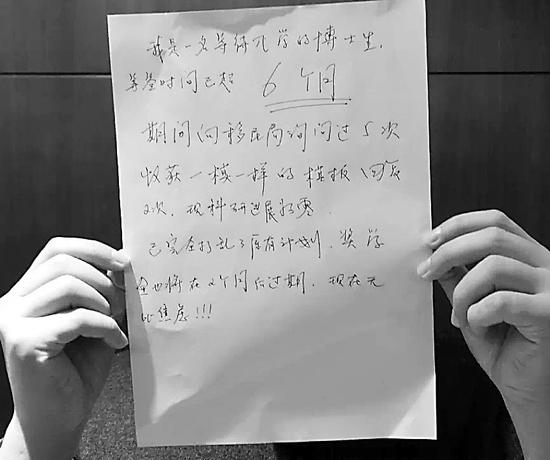 我是一名等待开学的博士生.
等签时间已超 6个月
期间向移民局询问过5次
收获一模一样的模板回复
2次. 现科研进展为零.
已完全打乱了原有计划. 奖学
金也将在2个月后过期. 现在无
比焦虑!!!